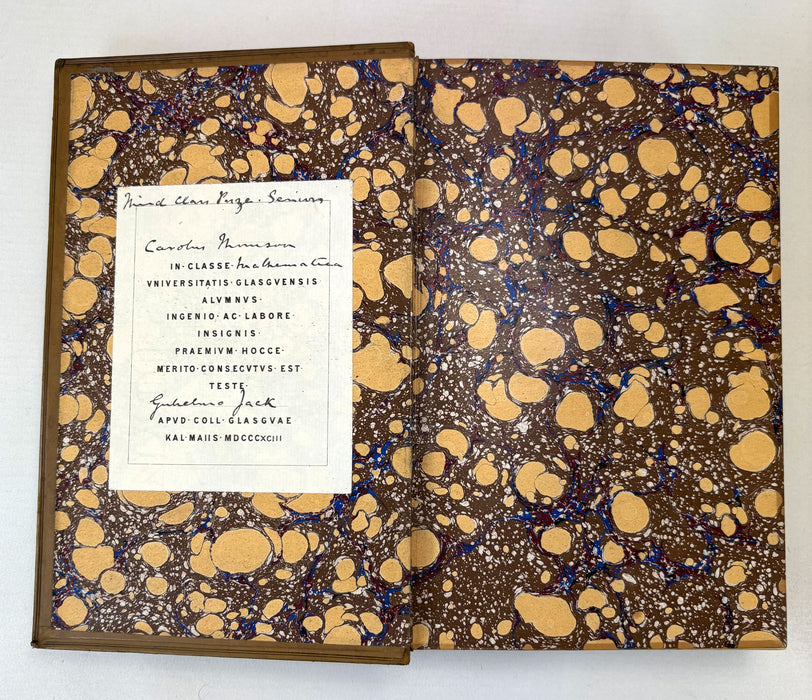 Third Class Prize. Seniors
Carolus Thomson
IN · CLASSE · Mathematica
VNIVERSITATIS · GLASGVENSIS
ALVMNVS ·
INGENIO · AC · LABORE ·
INSIGNIS ·
PRAEMIVM · HOCCE ·
MERITO · CONSECVTVS · EST ·
TESTE ·
Gulielmo Jack
APVD · COLL · GLASGVAE
KAL · MAIIS · MDCCCXCIII